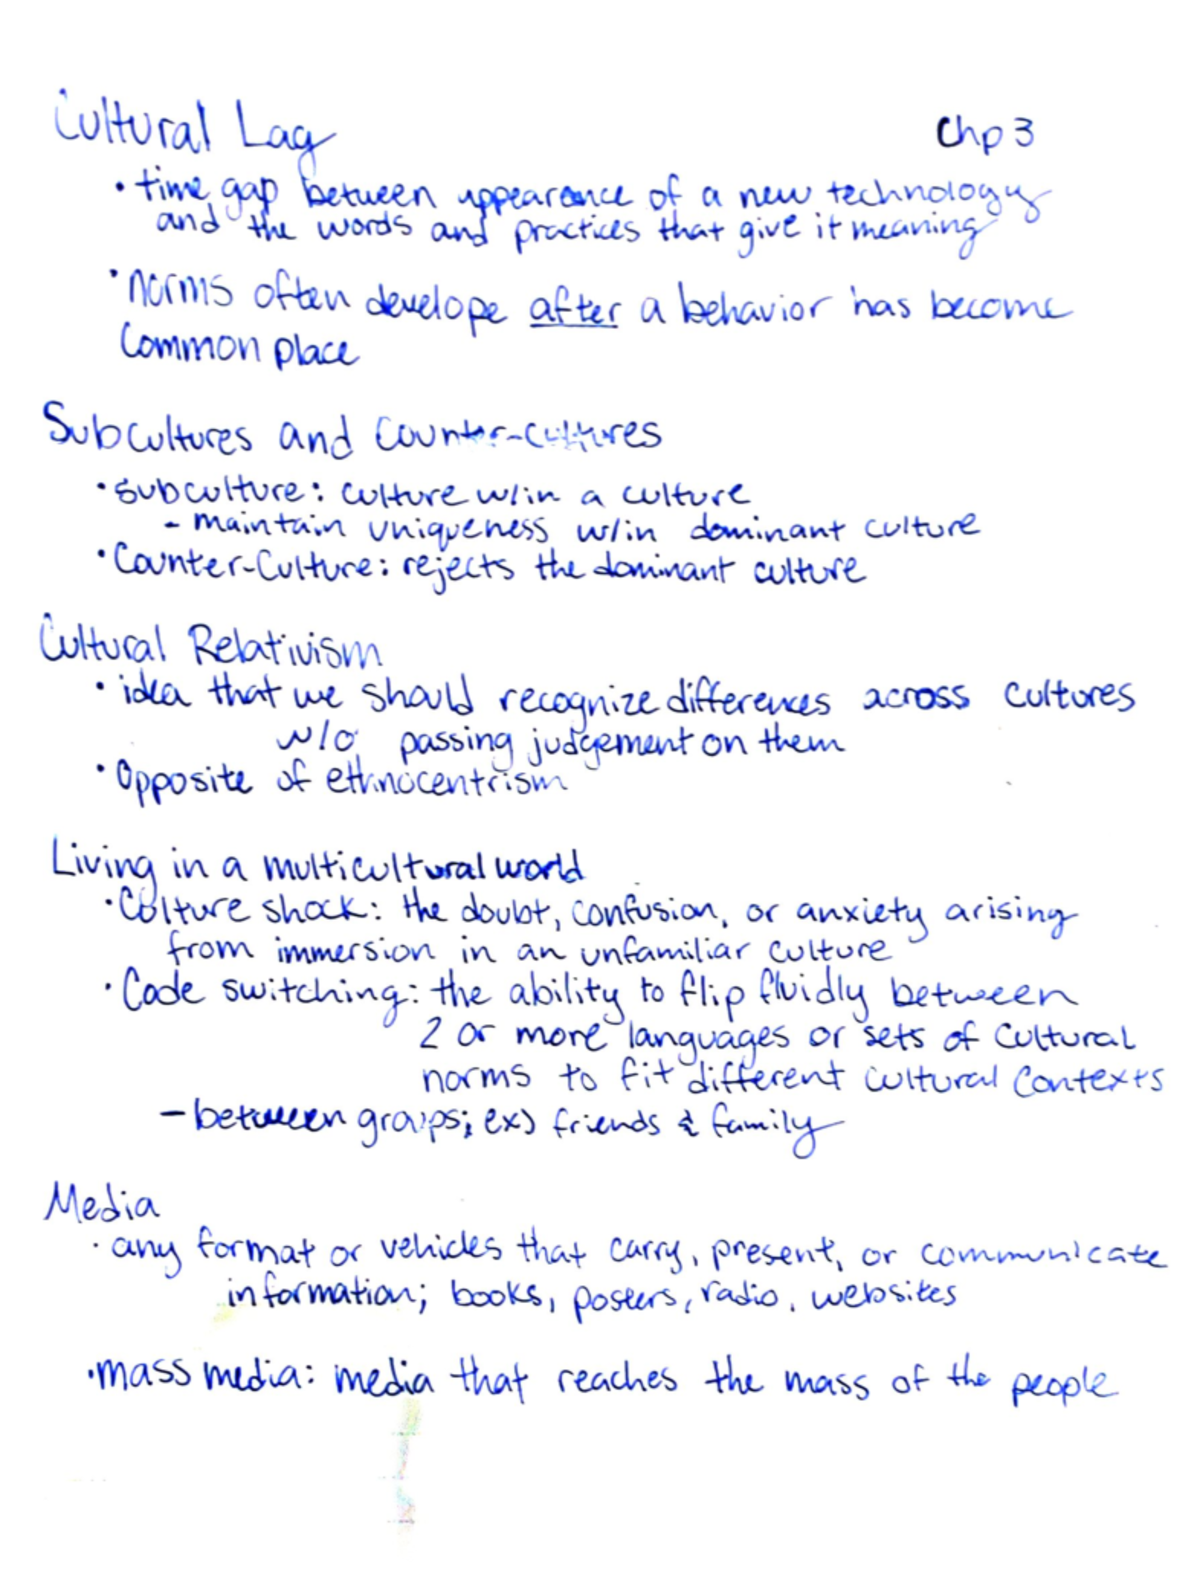 Cultural Lag
Chp 3
• time gap between appearance of a new technology
and the words and practices that give it meaning
• norms often develope after a behavior has become
Common place
Subcultures and Counter-cultures
• subculture: culture w/in a culture
- maintain uniqueness w/in dominant culture
• Counter-Culture: rejects the dominant culture
Cultural Relativism
• idea that we should recognize differences across cultures
w/o passing judgement on them
• Opposite of ethnocentrism
Living in a multicultural world
• Culture shock: the doubt, confusion, or anxiety arising
from immersion in an unfamiliar culture
• Code switching: the ability to flip fluidly between
2 or more languages or sets of cultural
norms to fit different cultural contexts
- between groups; ex) friends & family
Media
• any format or vehicles that carry, present, or communicate
information; books, posters, radio, websites
• mass media: media that reaches the mass of the people